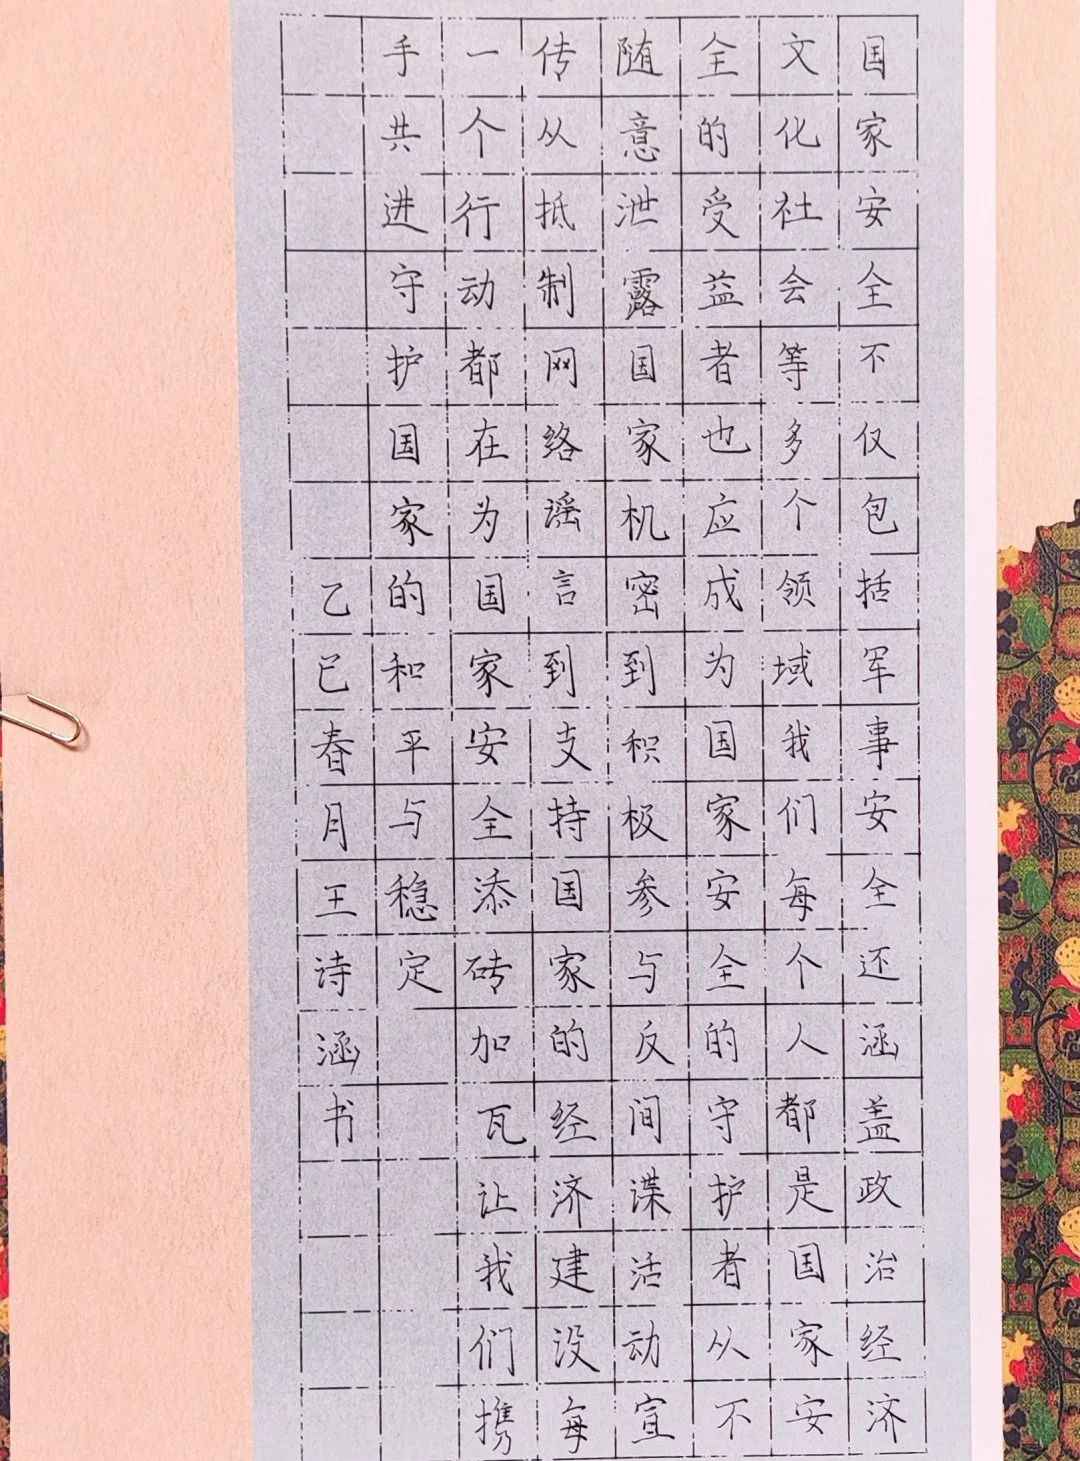 国家安全不仅包括军事安全还涵盖政治经济
文化社会等多个领域我们每个人都是国家安
全的受益者也应成为国家安全的守护者从不
随意泄露国家机密到积极参与反间谍活动宣
传从抵制网络谣言到支持国家的经济建设每
一个行动都在为国家安全添砖加瓦让我们携
手共进守护国家的和平与稳定
乙巳春月王诗涵书